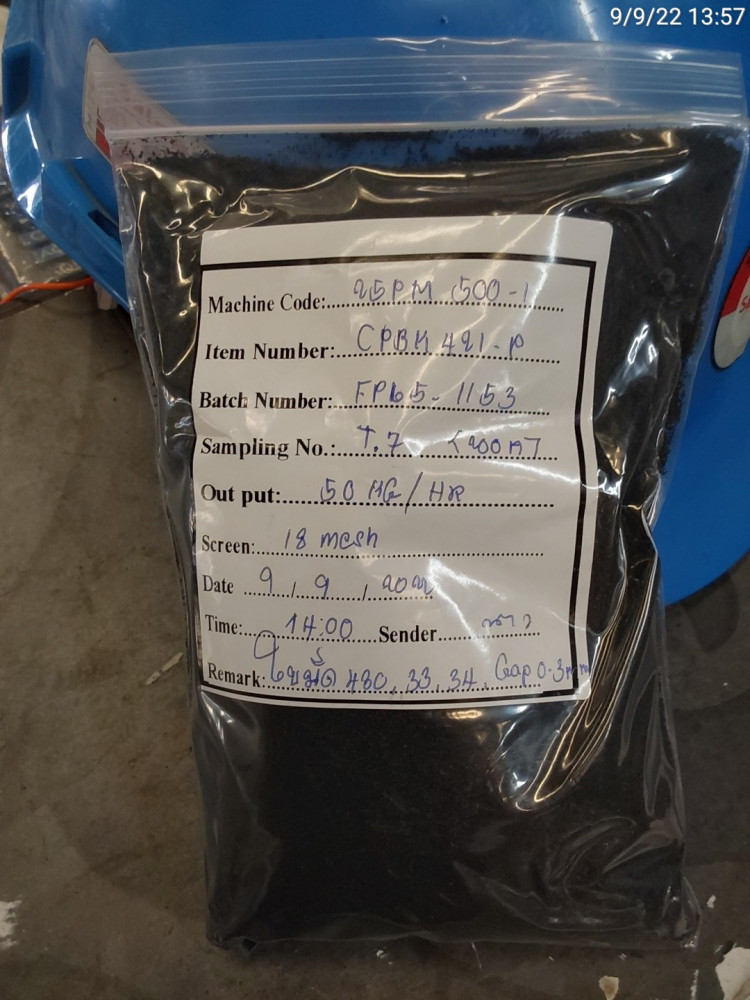 9/9/22 13:57
Machine Code: 25PM 500-1
Item Number: CPBK 421-P
Batch Number: FP65-1153
Sampling No.: T.7
Out put: 50 KG/HR
Screen: 18 mesh
Date 9/9/2022
Time: 14:00 Sender
Remark: ใช้มีด 480, 33, 34, Gap 0.3mm